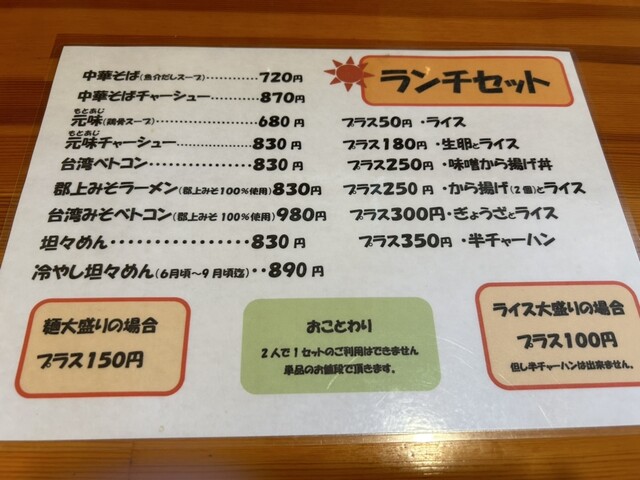 ランチセット
中華そば(魚介だしスープ)…………720円
中華そばチャーシュー………870円
もとあじ
元味(鶏骨スープ)………………680円
もとあじ
元味チャーシュー…………830円
台湾ベトコン………………830円
郡上みそラーメン(郡上みそ100%使用)830円
台湾みそベトコン(郡上みそ100%使用)980円
坦々めん・・・・・・・・・・・・・・・830円
冷やし坦々めん(6月頃~9月頃迄)・・890円
プラス50円・ライス
プラス180円・生卵とライス
プラス250円・味噌から揚げ丼
プラス250円・から揚げ(2個)とライス
プラス300円・ぎょうざとライス
プラス350円・半チャーハン
麺大盛りの場合
プラス150円
おことわり
2人で1セットのご利用はできません
単品のお値段で頂きます。
ライス大盛りの場合
プラス100円
但し半チャーハンは出来ません。